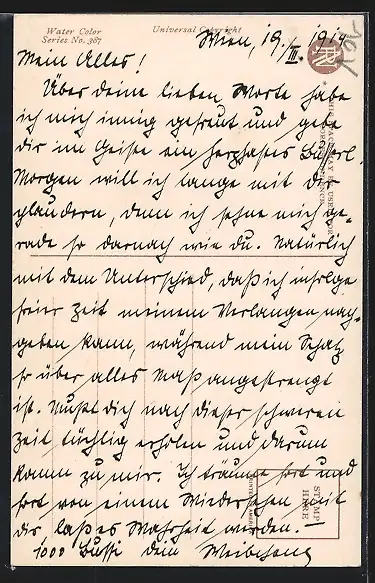 Water Color
Series No. 387
Universal Copyright
Wien, 19./III. 1914
Mein Alles!
Über deine lieben Worte habe
ich mich innig gefreut und gebe
dir im Geiste ein herzhaftes Busserl.
Morgen will ich lange mit dir
plaudern, denn ich sehne mich ge-
rade so darnach wie du. Natürlich
mit dem Unterschied, daß ich infolge
freier Zeit meinem Verlangen nach-
geben kann, während mein Schatz
so über alles Maß angestrengt
ist. Mußt dich nach dieser schweren
Zeit tüchtig erholen und darum
komm zu mir. Ich träume fort und
fort von einem Wiedersehen mit
dir laßes Wahrheit werden. —
1000 Bussi dein
STAMP
HERE